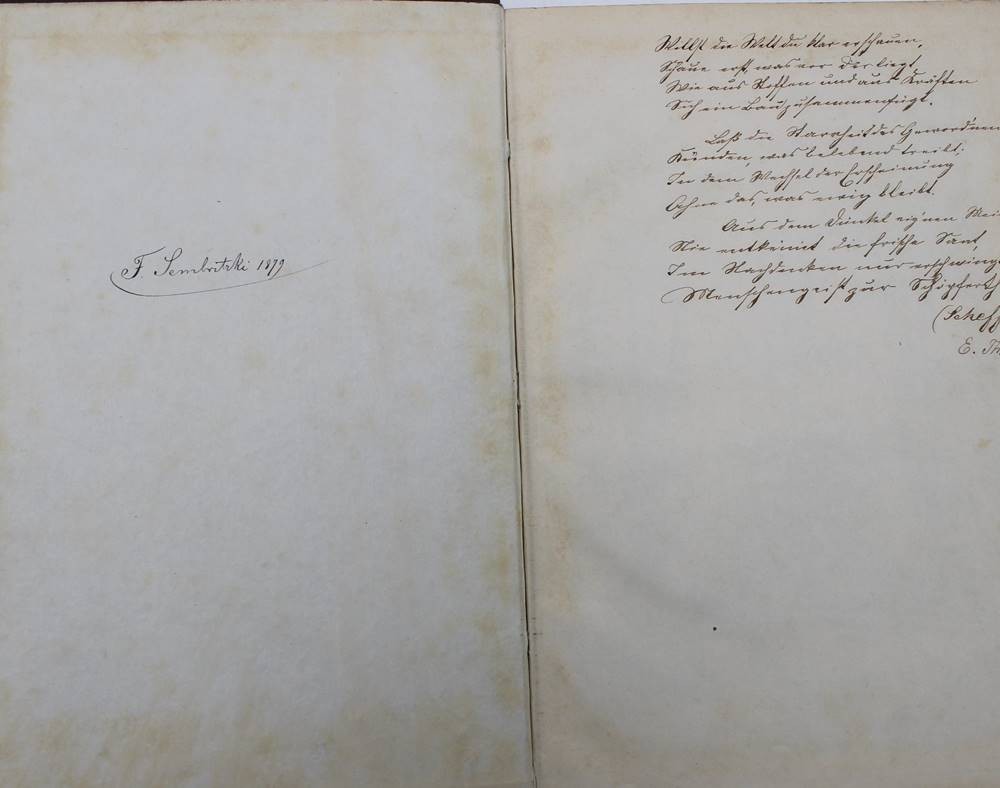 F. Sembritzki 1879
Willst die Welt du klar erschauen,
Schaue erst, was vor dir liegt,
Wie aus Stoffen und aus Kräften
Sich ein Bau zusammenfügt.
Laß die Starrheit des Gewordnen
Künden, was belebend treibt;
In dem Wechsel der Erscheinung
Ahne das, was ewig bleibt.
Aus dem Dünkel eig'nen Mei
Nie entkeimt die frische Saat,
Im Nachdenken nur erschwing
Menschengeist zur Schöpferth
(Scheff
E. Th